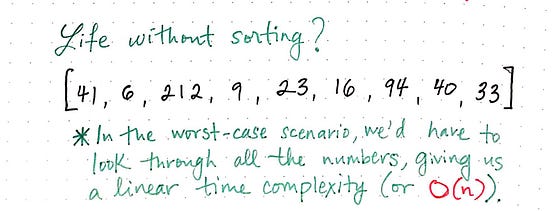 Life without sorting?
[41, 6, 212, 9, 23, 16, 94, 40, 33]
* In the worst-case scenario, we'd have to
look through all the numbers, giving us
a linear time complexity (or O(n)).